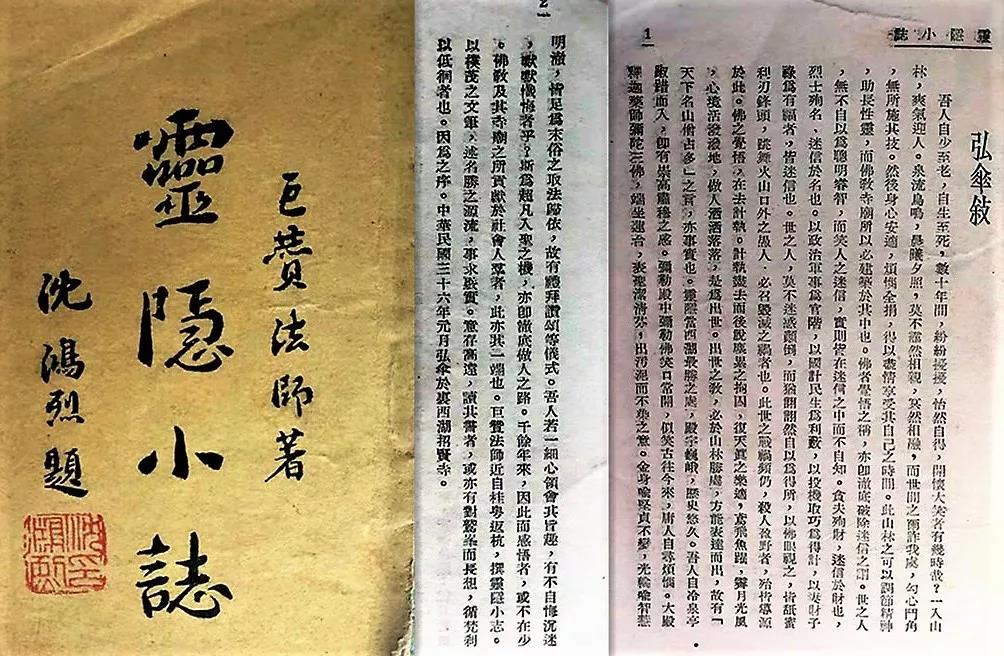 巨贊法師著
靈隱小誌
沈鴻烈題
靈隱小誌
1
弘傘敘
吾人自少至老，自生至死，數十年間，紛紛擾擾，怡然自得，開懷大笑者有幾時哉？一入山
林，爽氣迎人。泉流鳥鳴，晨曦夕照，莫不靄然相親，冥然相融，而世間之爾詐我虞，勾心鬥角
，無所施其技。然後身心安適，煩惱全捐，得以盡情享受其自己之時間。此山林之可以調節精神
，助長性靈，而佛教寺廟所以必建築於其中也。佛者覺悟之稱，亦卽澈底破除迷信之謂。世之人
，無不自以爲聰明睿智，而笑人之迷信，實則皆在迷信之中而不自知。貪夫殉財，迷信於財也，
烈士殉名，迷信於名也。以政治軍事爲官階，以國計民生爲利藪，以投機取巧爲得計，以妻財子
祿爲有福者，皆迷信也。世之人，莫不迷惑顛倒，而猶翩翩然自以爲得所，以佛眼視之，皆舐蜜
利刃鋒頭，跳舞火山口外之愚人，必召毀滅之禍者也。此世之戰禍頻仍，殺人盈野者，殆皆導源
於此。佛之覺悟，在去計執。計執盡去而後脫塵累之拘囚，復天眞之樂趣，鳶飛魚躍，霽月光風
，心境活潑潑地，做人洒洒落落，是爲出世。出世之教，必於山林勝處，方能表達而出，故有「
天下名山僧占多」之言，亦事實也。靈隱當西湖最勝之處，殿宇巍峨，歷史悠久。吾人自冷泉亭
踏而入，卽有崇高肅穆之感。彌勒殿中彌勒佛笑口常開，似笑古往今來，庸人自尋煩惱。大殿
釋迦藥師彌陀三佛，端坐蓮台，表聖潔清芬，出污泥而不染之意。金身喻堅貞不變，光輪喻智慧
2
明澈，皆足爲末俗之取法歸依，故有禮拜讚頌等儀式。吾人若一細心領會其旨趣，有不自悔沉迷
，默默懺悔者乎？斯爲超凡入聖之機，亦卽澈底做人之路。千餘年來，因此而感悟者，或不在少
。佛教及其寺廟之所貢獻於社會人羣者，此亦其一端也。巨贊法師近自桂粤返杭，撰靈隱小志。
以樸茂之文筆，述名勝之源流，事求嚴實。意存高遠，讀其書者，或亦有對鷲峯而長想，循梵刹
以低徊者也。因爲之序。中華民國三十六年元月弘傘於裏西湖招賢寺。